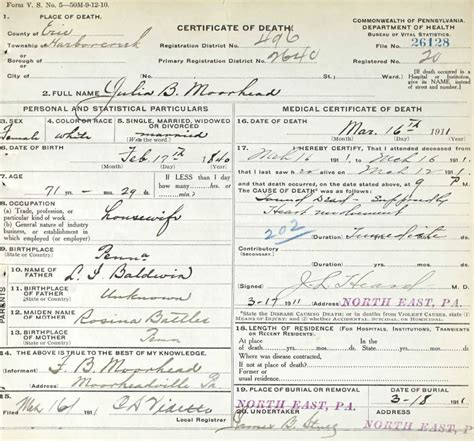 Form V. S. No. 5—50M-9-12-10.
1. PLACE OF DEATH.
County of Erie
Township of Harborcreek
or
Borough of
or
City of
CERTIFICATE OF DEATH
Registration District No. 496
Primary Registration District No. 2640
COMMONWEALTH OF PENNSYLVANIA
DEPARTMENT OF HEALTH
BUREAU OF VITAL STATISTICS
File No. 26128
Registered No. 20
[If death occurred in a Hospital or Institution, give its NAME, instead of street and number.]
2. FULL NAME Julia B. Moorhead
PERSONAL AND STATISTICAL PARTICULARS
3. SEX
Female
4. COLOR OR RACE
white
5. SINGLE, MARRIED, WIDOWED OR DIVORCED
married
6. DATE OF BIRTH
Feb 17th 1840
(Month) (Day) (Year)
7. AGE
71 yrs. — mos. 29 ds.
If LESS than 1 day how many
8. OCCUPATION
(a) Trade, profession, or particular kind of work
(b) General nature of industry, business, or establishment in which employed (or employer)
housewife
9. BIRTHPLACE
(State or Country)
Penna
PARENTS
10. NAME OF FATHER
L. S. Baldwin
11. BIRTHPLACE OF FATHER
(State or Country)
Unknown
12. MAIDEN NAME OF MOTHER
Rosina Battles
13. BIRTHPLACE OF MOTHER
(State or Country)
Penn
14. THE ABOVE IS TRUE TO THE BEST OF MY KNOWLEDGE.
(Informant) F. B. Moorhead
(Address) Moorheadville Pa
15.
Filed Mch 16 1911
Local Registrar
MEDICAL CERTIFICATE OF DEATH
16. DATE OF DEATH
Mar. 16th 1911
(Month) (Day) (Year)
17. I HEREBY CERTIFY, That I attended deceased from
Mch 16 1911 to Mch 16 1911
that I last saw h alive on Mch 12 1911
and that death occurred, on the date stated above, at 9 M.
The CAUSE OF DEATH was as follows:
Found Dead — Supposedly
Heart involvement
202
(Duration) Immediate
Contributory
(Secondary)
(Duration) yrs. mos. ds.
(Signed) J. L. Heard
3-17 1911 (Address) NORTH EAST, PA.
18. LENGTH OF RESIDENCE (For Hospitals, Institutions, Transients or Recent Residents.)
At place of death
In the State
Where was disease contracted, if not at place of death?
Former or usual residence
19. PLACE OF BURIAL OR REMOVAL
NORTH EAST, PA.
DATE OF BURIAL
3-18 1911
20. UNDERTAKER
(Address) NORTH EAST, PA.